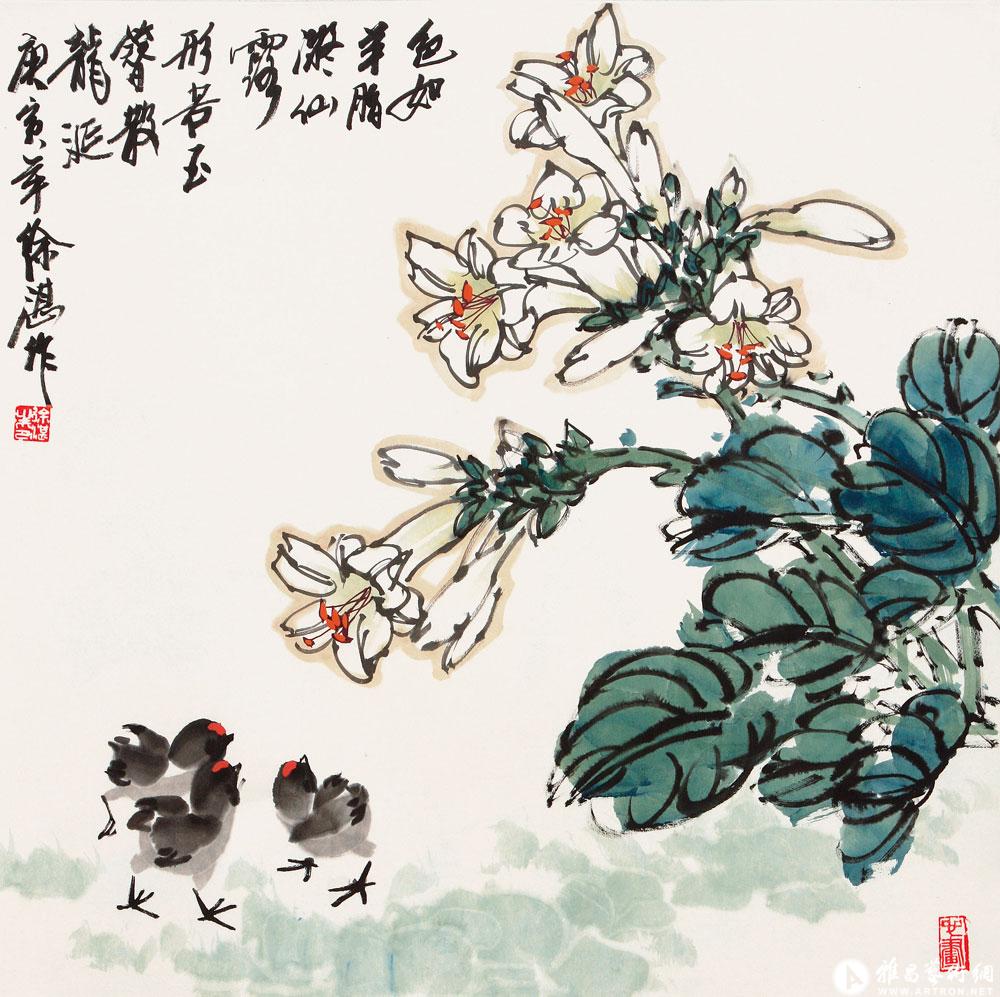 色如
羊脂
凝仙
露
形若玉
簪散
龍涎
庚寅年徐湛作
雅昌藝術網
WWW.ARTRON.NET